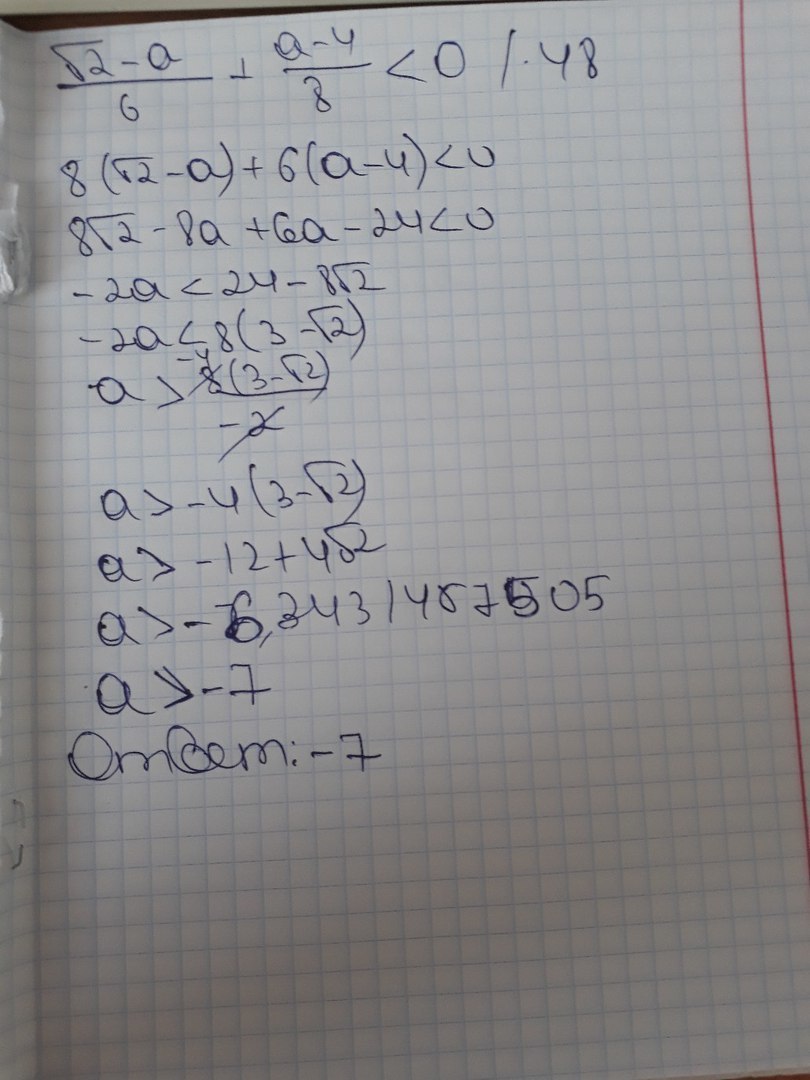 (√2-a)/6 + (a-4)/8 < 0 /·48
8(√2-a)+6(a-4)<0
8√2-8a+6a-24<0
-2a<24-8√2
-2a<8(3-√2)
a > -4 8(3-√2)/-2
a>-4(3-√2)
a>-12+4√2
a>-6,3431457505
a>-7
Ответ: -7